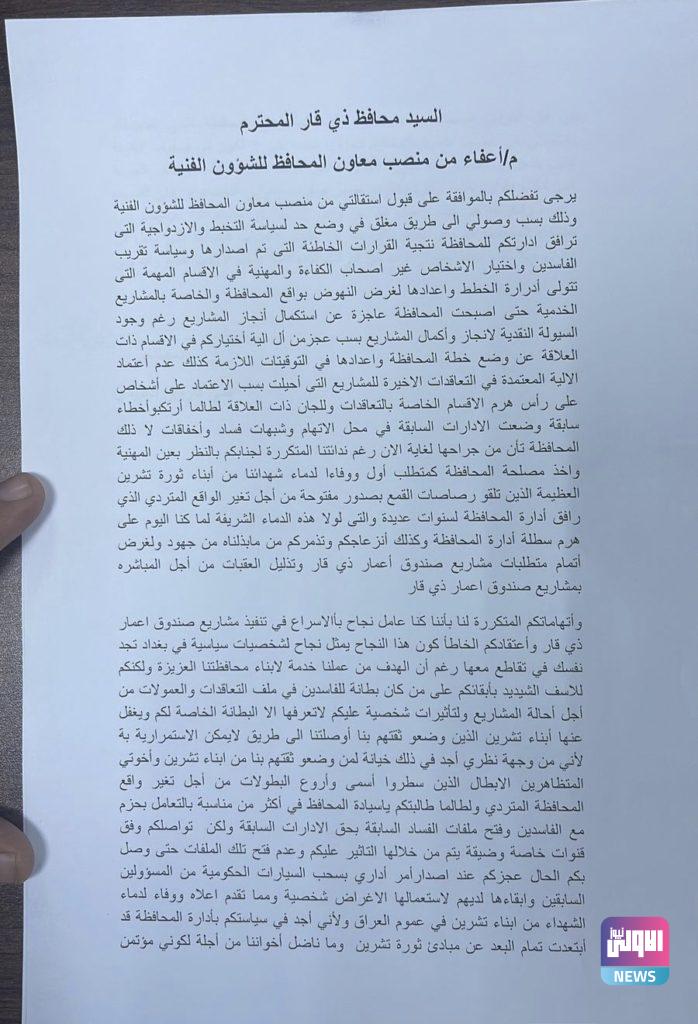 السيد محافظ ذي قار المحترم
م/أعفاء من منصب معاون المحافظ للشؤون الفنية
يرجى تفضلكم بالموافقة على قبول استقالتي من منصب معاون المحافظ للشؤون الفنية
وذلك بسب وصولي الى طريق مغلق في وضع حد لسياسة التخبط والازدواجية التى
ترافق ادارتكم للمحافظة نتجية القرارات الخاطئة التى تم اصدارها وسياسة تقريب
الفاسدين واختيار الاشخاص غير اصحاب الكفاءة والمهنية في الاقسام المهمة التى
تتولى أدرارة الخطط واعدادها لغرض النهوض بواقع المحافظة والخاصة بالمشاريع
الخدمية حتى اصبحت المحافظة عاجزة عن استكمال أنجاز المشاريع رغم وجود
السيولة النقدية لانجاز وأكمال المشاريع بسب عجزمن أل الية أختياركم في الاقسام ذات
العلاقة عن وضع خطة المحافظة واعدادها في التوقيتات اللازمة كذلك عدم أعتماد
الالية المعتمدة في التعاقدات الاخيرة للمشاريع التى أحيلت بسب الاعتماد على أشخاص
على رأس هرم الاقسام الخاصة بالتعاقدات وللجان ذات العلاقة لطالما أرتكبوأخطاء
سابقة وضعت الادارات السابقة في محل الاتهام وشبهات فساد وأخفاقات لا ذلك
المحافظة تأن من جراحها لغاية الان رغم ندائتنا المتكررة لجنابكم بالنظر بعين المهنية
واخذ مصلحة المحافظة كمتطلب أول ووفاءا لدماء شهدائنا من أبناء ثورة تشرين
العظيمة الذين تلقو رصاصات القمع بصدور مفتوحة من أجل تغير الواقع المتردي الذي
رافق أدارة المحافظة لسنوات عديدة والتى لولا هذه الدماء الشريفة لما كنا اليوم على
هرم سطلة أدارة المحافظة وكذلك أنزعاجكم وتذمركم من مابذلناه من جهود ولغرض
أتمام متطلبات مشاريع صندوق أعمار ذي قار وتذليل العقبات من أجل المباشره
بمشاريع صندوق اعمار ذي قار
وأتهاماتكم المتكررة لنا بأننا كنا عامل نجاح بأالاسراع في تنفيذ مشاريع صندوق اعمار
ذي قار وأعتقادكم الخاطأ كون هذا النجاح يمثل نجاح لشخصيات سياسية في بغداد تجد
نفسك في تقاطع معها رغم أن الهدف من عملنا خدمة لابناء محافظتنا العزيزة ولكنكم
للاسف الشيديد بأبقائكم على من كان بطانة للفاسدين في ملف التعاقدات والعمولات من
أجل أحالة المشاريع ولتأثيرات شخصية عليكم لاتعرفها الا البطانة الخاصة لكم ويغفل
عنها أبناء تشرين الذين وضعو ثقتهم بنا أوصلتنا الى طريق لايمكن الاستمرارية بة
لأني من وجهة نظري أجد في ذلك خيانة لمن وضعو ثقتهم بنا من ابناء تشرين وأخوتي
المتظاهرين الابطال الذين سطروا أسمى وأروع البطولات من أجل تغير واقع
المحافظة المتردي ولطالما طالبتكم ياسيادة المحافظ في أكثر من مناسبة بالتعامل بحزم
مع الفاسدين وفتح ملفات الفساد السابقة بحق الادارات السابقة ولكن تواصلكم وفق
قنوات خاصة وضيقة يتم من خلالها التاثير عليكم وعدم فتح تلك الملفات حتى وصل
بكم الحال عجزكم عند اصدارأمر أداري بسحب السيارات الحكومية من المسؤولين
السابقين وابقاءها لديهم لاستعمالها الاغراض شخصية ومما تقدم اعلاه ووفاء لدماء
الشهداء من ابناء تشرين في عموم العراق ولأني أجد في سياستكم بأدارة المحافظة قد
أبتعدت تمام البعد عن مبادئ ثورة تشرين وما ناضل أخواننا من أجلة لكوني مؤتمن
الاولى نيوز
NEWS